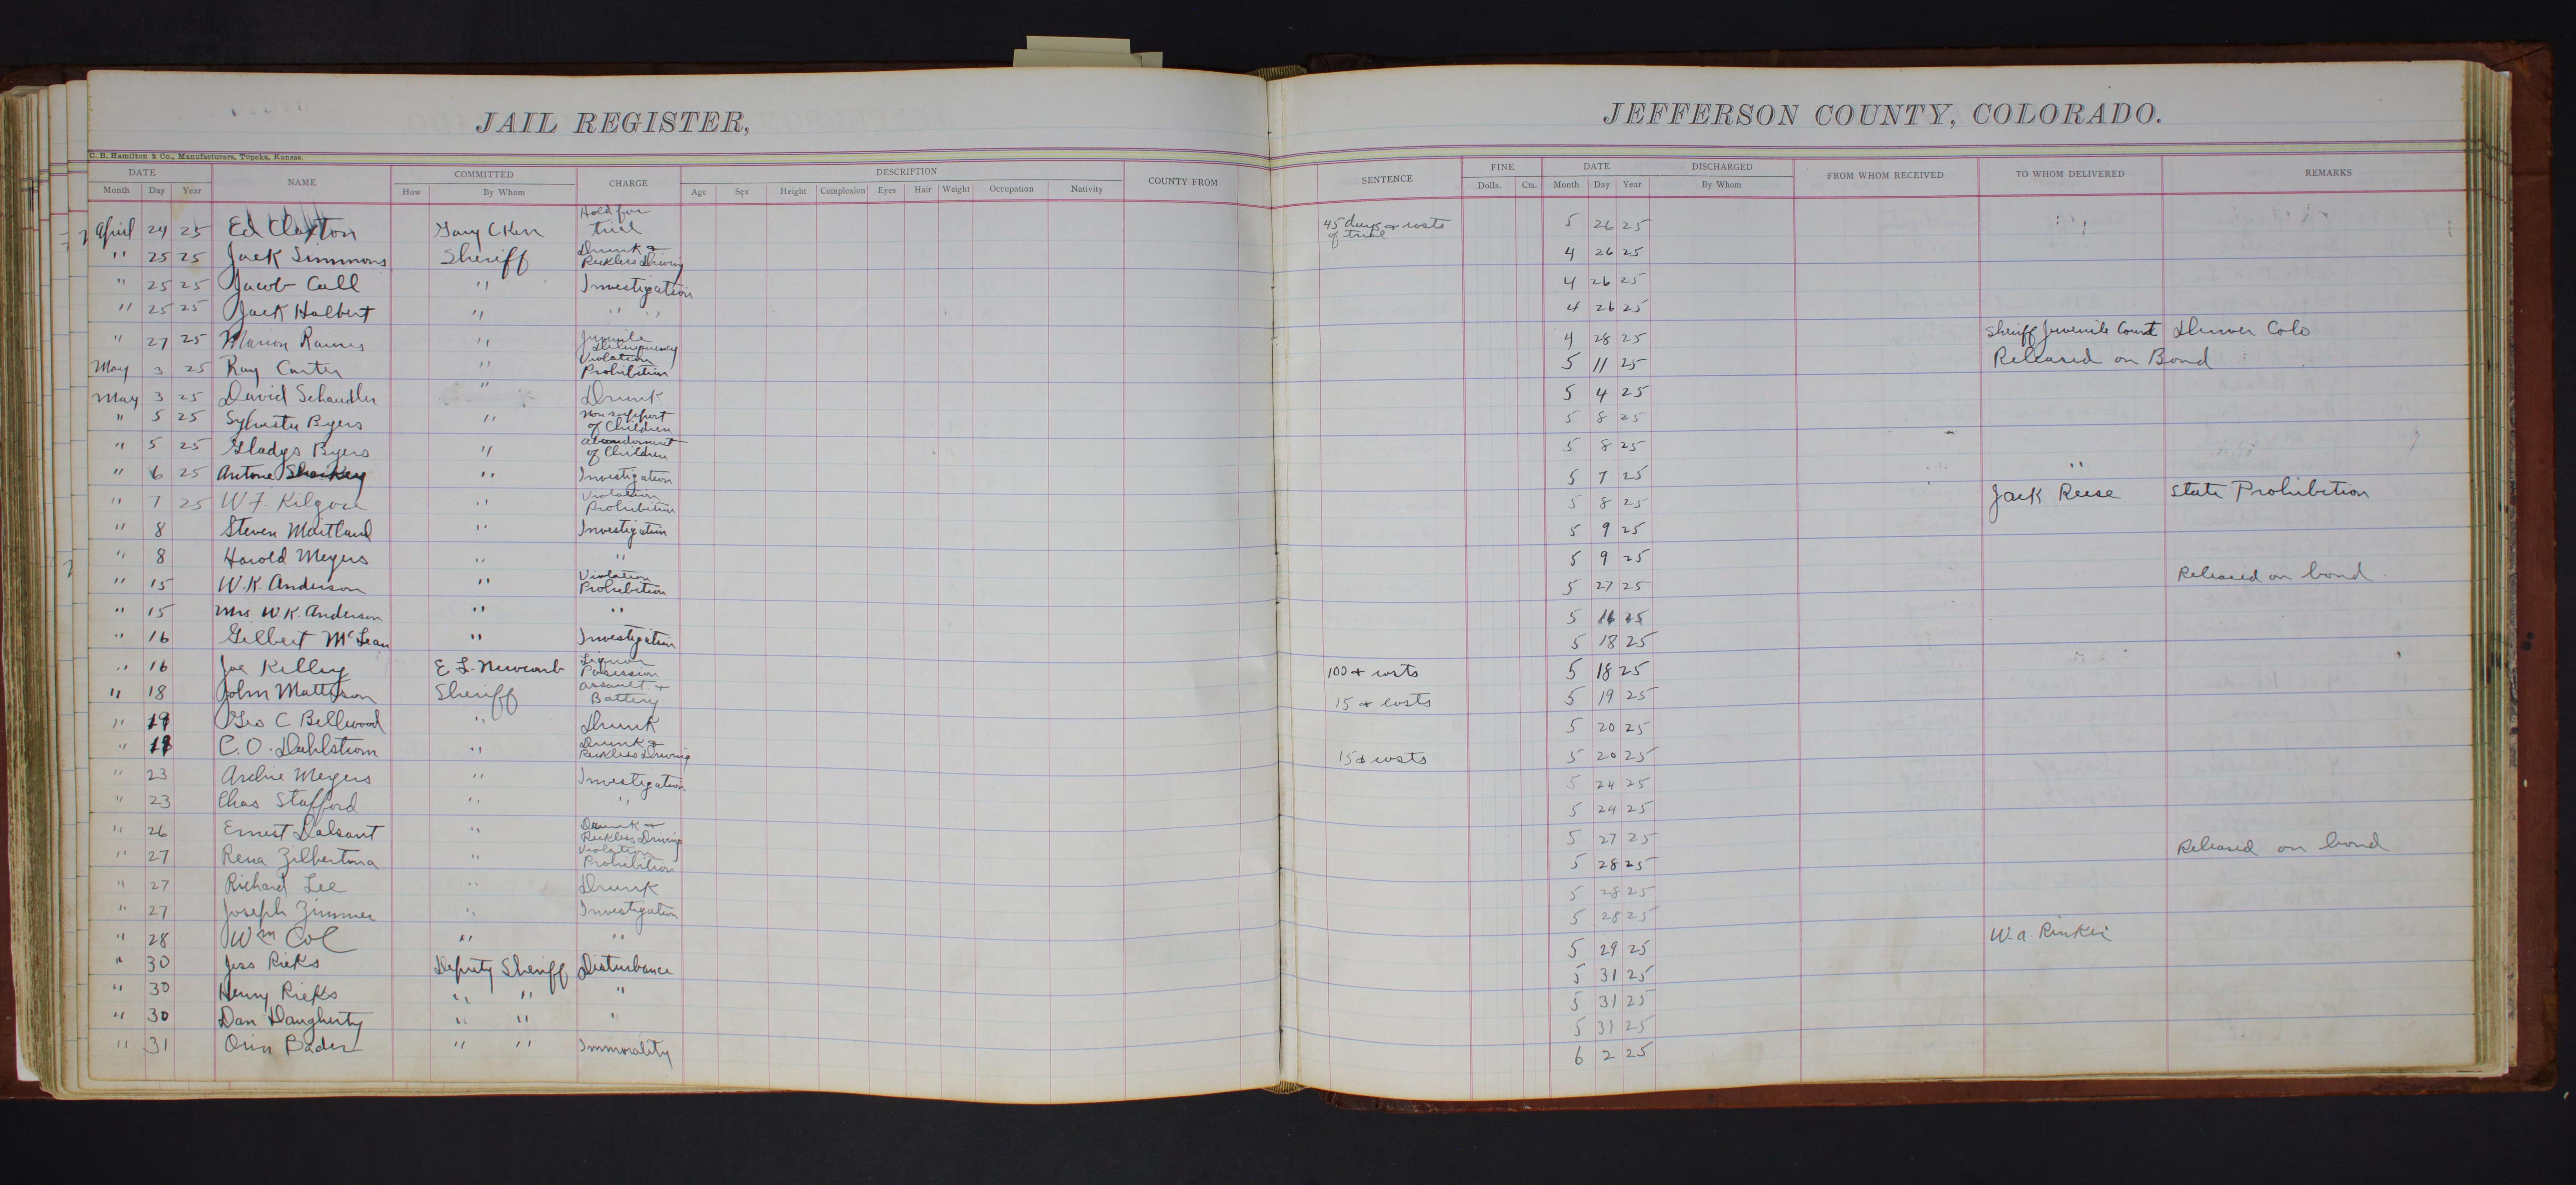 JAIL REGISTER,
JEFFERSON COUNTY, COLORADO.
C. B. Hamilton & Co., Manufacturers, Topeka, Kansas.
DATE NAME COMMITTED CHARGE DESCRIPTION COUNTY FROM SENTENCE FINE DATE DISCHARGED FROM WHOM RECEIVED TO WHOM DELIVERED REMARKS
Month Day Year How By Whom Age Sex Height Complexion Eyes Hair Weight Occupation Nativity Dolls. Cts. Month Day Year By Whom
April 24 25 Ed Claxton Gary C Kerr Hold for trial 45 days & costs of trial 5 26 25
" 25 25 Jack Simmons Sheriff Drunk & Reckless Driving 4 26 25
" 25 25 Jacob Call " Investigation 4 26 25
" 25 25 Jack Halbert " " " 4 26 25
" 27 25 Marion Raines " Juvenile Delinquency 4 28 25 Sheriff Juvenile Court Denver Colo
May 3 25 Ray Carter " Violation Prohibition 5 11 25 Released on Bond
May 3 25 David Schaudler " Drunk 5 4 25
" 5 25 Sylvester Byers " Non support of Children 5 8 25
" 5 25 Gladys Byers " abandonment of Children 5 8 25
" 6 25 Antone Sharkey " Investigation 5 7 25
" 7 25 W F. Kilgore " Violation Prohibition 5 8 25 Jack Reese State Prohibition
" 8 Steven Maitland " Investigation 5 9 25
" 8 Harold Meyers " " 5 9 25
" 15 W. K. Anderson " Violation Prohibition 5 27 25 Released on bond
" 15 Mrs W K. Anderson " " 5 16 25
" 16 Gilbert McLean " Investigation 5 18 25
" 16 Joe Kelley E L. Newcomb Liquor Possession 100 & costs 5 18 25
" 18 John Mattson Sheriff Assault & Battery 15 & costs 5 19 25
" 19 Geo C Bellwood " Drunk 5 20 25
" 19 C. O. Dahlstrom " Drunk & Reckless Driving 15 & costs 5 20 25
" 23 Archie Meyers " Investigation 5 24 25
" 23 Chas Stafford " " 5 24 25
" 26 Ernest Dalsant " Drunk & Reckless Driving 5 27 25
" 27 Rena Zilbertina " Violation Prohibition 5 28 25 Released on bond
" 27 Richard Lee " Drunk 5 28 25
" 27 Joseph Zimmer " Investigation 5 28 25
" 28 Wm Col " " 5 29 25 W. A. Rinker
" 30 Jess Rieks Deputy Sheriff Disturbance 5 31 25
" 30 Henry Rieks " " " 5 31 25
" 30 Dan Daugherty " " " 5 31 25
" 31 Orin Bader " " Immorality 6 2 25